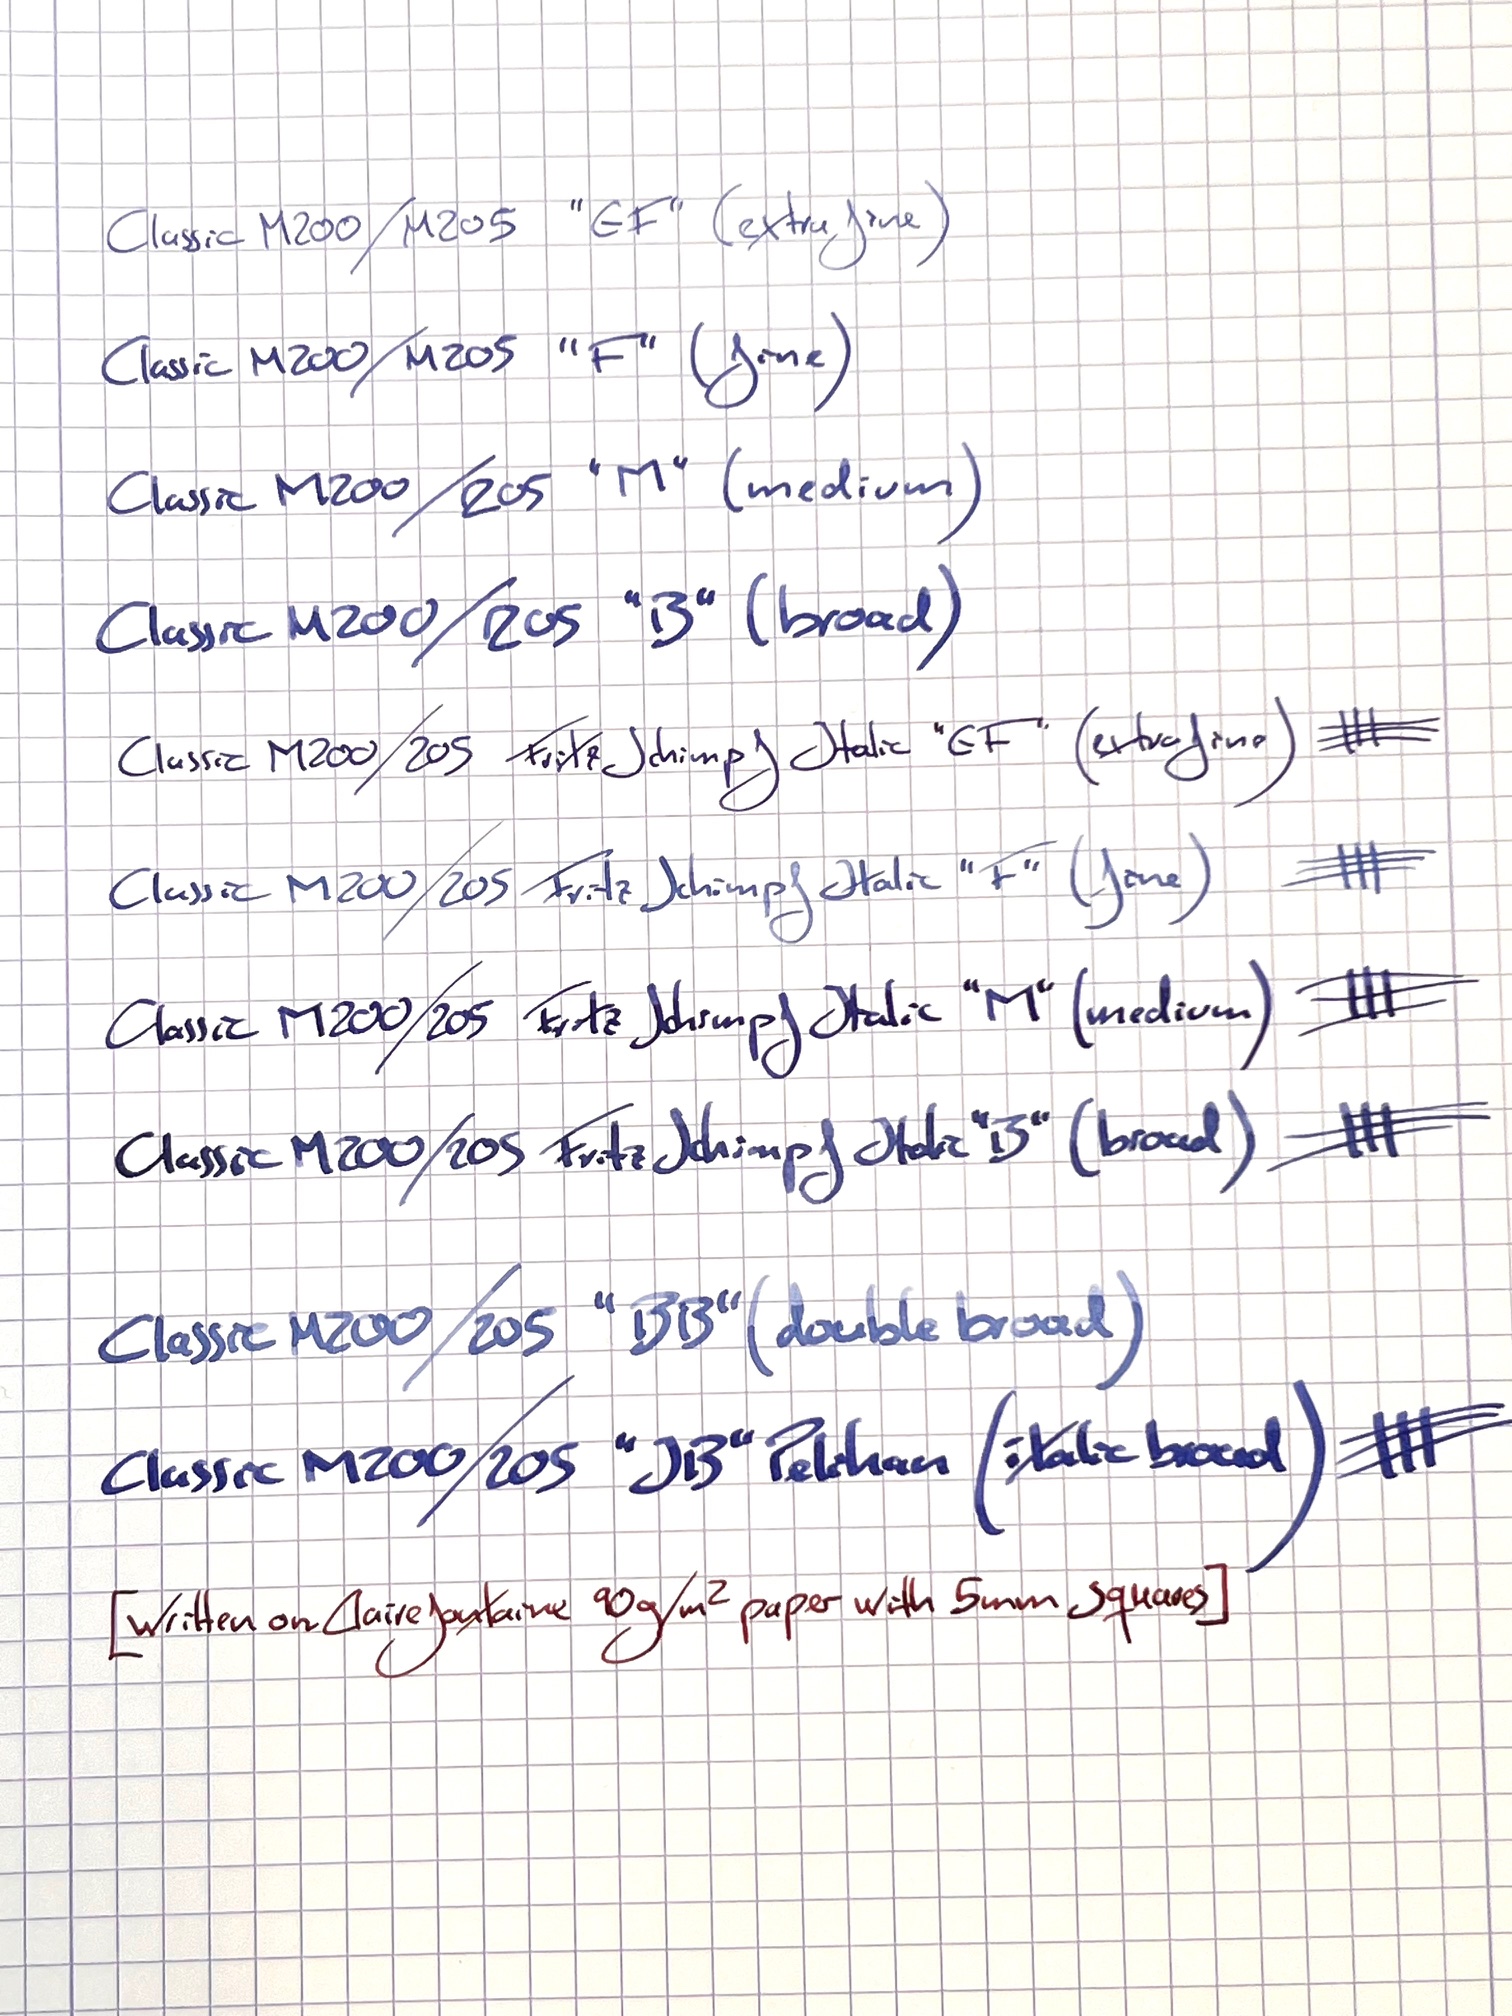 Classic M200/M205 "EF" (extra fine)
Classic M200/M205 "F" (fine)
Classic M200/205 "M" (medium)
Classic M200/205 "B" (broad)
Classic M200/205 Fritz Schimpf Italic "EF" (extra fine)
Classic M200/205 Fritz Schimpf Italic "F" (fine)
Classic M200/205 Fritz Schimpf Italic "M" (medium)
Classic M200/205 Fritz Schimpf Italic "B" (broad)
Classic M200/205 "BB" (double broad)
Classic M200/205 "IB" Pelikan (italic broad)
[written on Clairefontaine 90g/m² paper with 5mm squares]